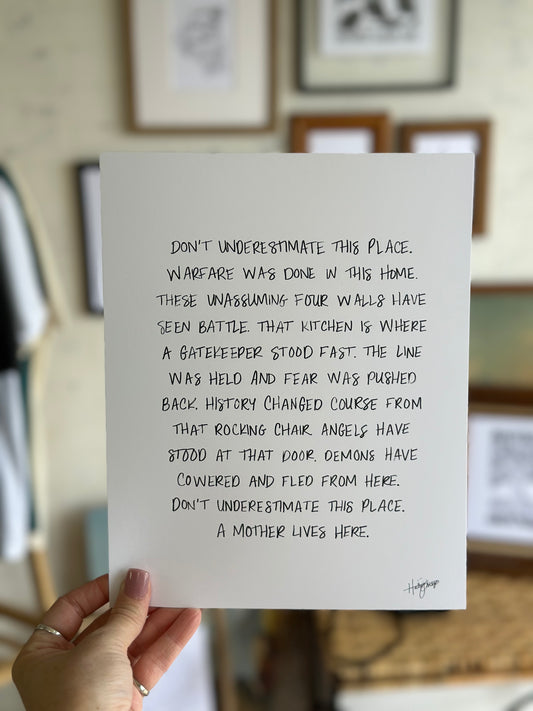 DON'T UNDERESTIMATE THIS PLACE.
WARFARE WAS DONE IN THIS HOME.
THESE UNASSUMING FOUR WALLS HAVE
SEEN BATTLE. THAT KITCHEN IS WHERE
A GATEKEEPER STOOD FAST. THE LINE
WAS HELD AND FEAR WAS PUSHED
BACK. HISTORY CHANGED COURSE FROM
THAT ROCKING CHAIR. ANGELS HAVE
STOOD AT THAT DOOR. DEMONS HAVE
COWERED AND FLED FROM HERE.
DON'T UNDERESTIMATE THIS PLACE.
A MOTHER LIVES HERE.